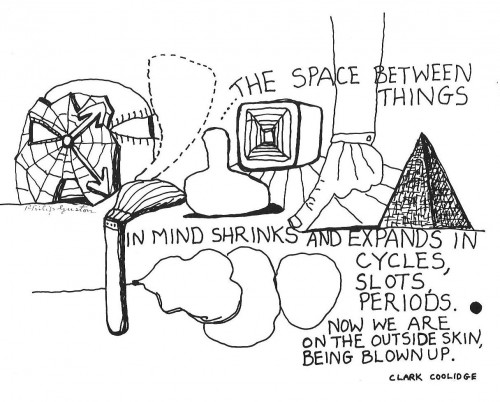 THE SPACE BETWEEN
THINGS
Philip Guston
IN MIND SHRINKS AND EXPANDS IN
CYCLES,
SLOTS,
PERIODS.
NOW WE ARE
ON THE OUTSIDE SKIN,
BEING BLOWN UP.
CLARK COOLIDGE